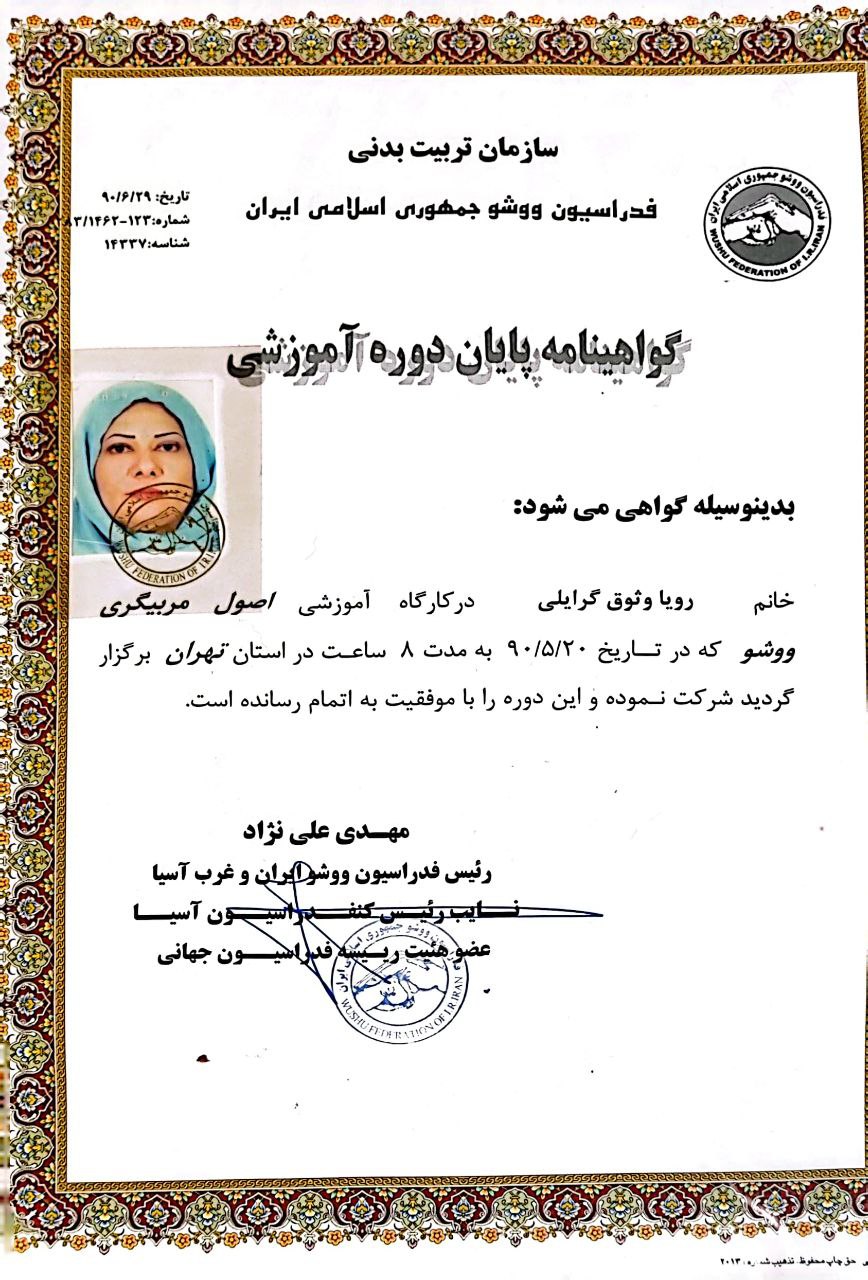 سازمان تربیت بدنی
فدراسیون ووشو جمهوری اسلامی ایران
تاریخ: ۹۰/۶/۲۹
شماره: ۱۲۳-۸۳/۱۴۶۲
شناسه: ۱۴۳۳۷
فدراسیون ووشو جمهوری اسلامی ایران
WUSHU FEDERATION OF I.R.IRAN
گواهینامه پایان دوره آموزشی
WUSHU FEDERATION OF I.R.I
بدینوسیله گواهی می شود:
خانم رویا وثوق گرایلی درکارگاه آموزشی اصول مربیگری
ووشو که در تاریخ ۹۰/۵/۲۰ به مدت ۸ ساعت در استان تهران برگزار
گردید شرکت نموده و این دوره را با موفقیت به اتمام رسانده است.
مهدی علی نژاد
رئیس فدراسیون ووشو ایران و غرب آسیا
نایب رئیس کنفدراسیون آسیا
عضو هئیت رییسه فدراسیون جهانی
WUSHU FEDERATION OF I.R.IRAN
حق چاپ محفوظ. تذهیب ۲۰۱۳